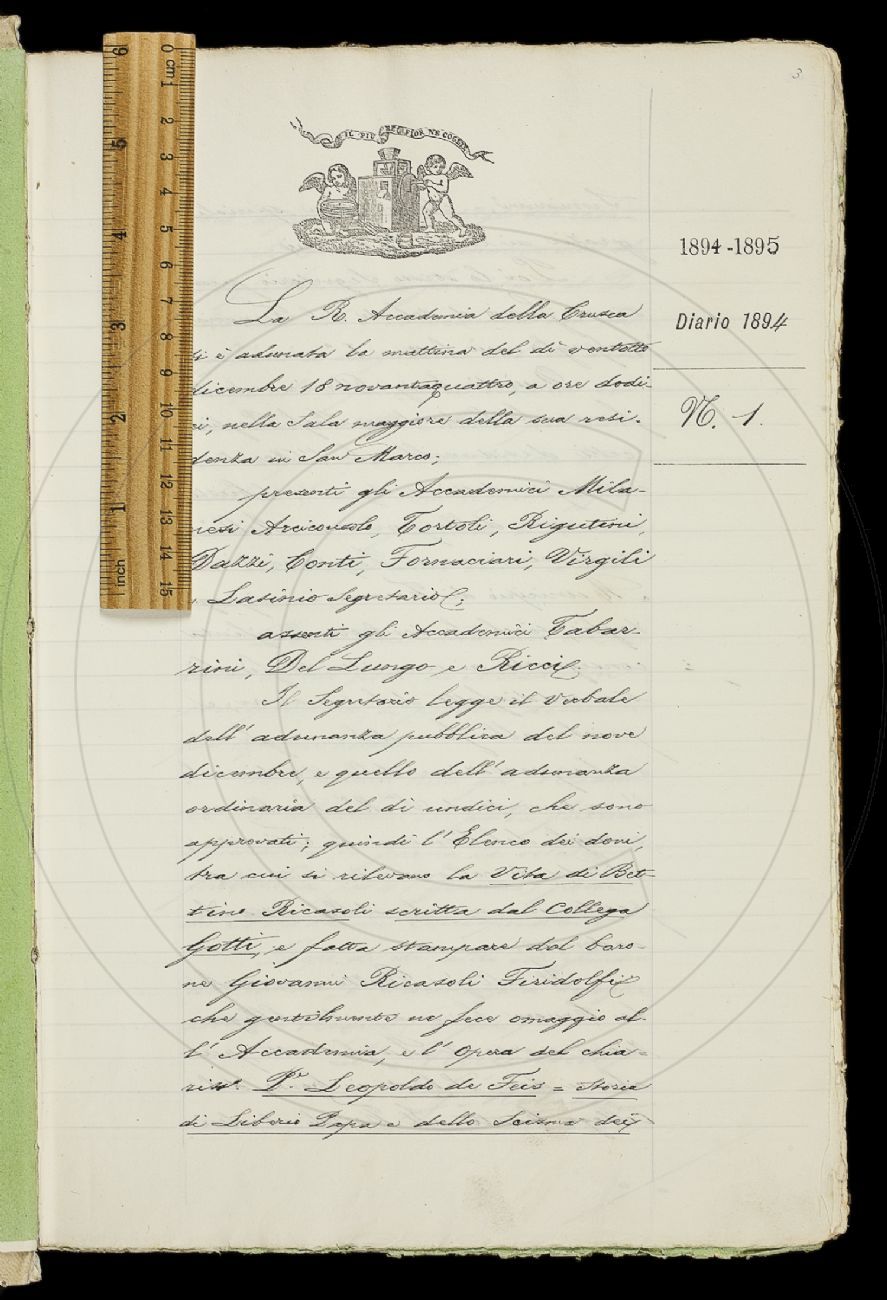 3
IL PIÙ BEL FIOR NE COGLIE
1894-1895
Diario 1894
N. 1.
La R. Accademia della Crusca
si è adunata la mattina del dì ventotto
dicembre 18 novantaquattro, a ore dodi-
ci, nella Sala maggiore della sua resi-
denza in San Marco;
presenti gli Accademici Mila-
nesi Arciconsolo, Tortoli, Rigutini,
Dazzi, Conti, Fornaciari, Virgili
e Lasinio Segretario;
assenti gli Accademici Tabar-
rini, Del Lungo e Ricci.
Il Segretario legge il Verbale
dell'adunanza pubblica del nove
dicembre, e quello dell'adunanza
ordinaria del dì undici, che sono
approvati; quindi l'Elenco dei doni,
tra cui si rilevano la Vita di Bet-
tino Ricasoli scritta dal Collega
Gotti, e fatta stampare dal baro-
ne Giovanni Ricasoli Firidolfi
che gentilmente ne fece omaggio al-
l'Accademia, e l'Opera del chia-
riss.º P.e Leopoldo de Feis = Storia
di Liberio Papa e dello Scisma dei
0 cm 1 2 3 4 5 6 7 8 9 10 11 12 13 14 15
inch 1 2 3 4 5 6